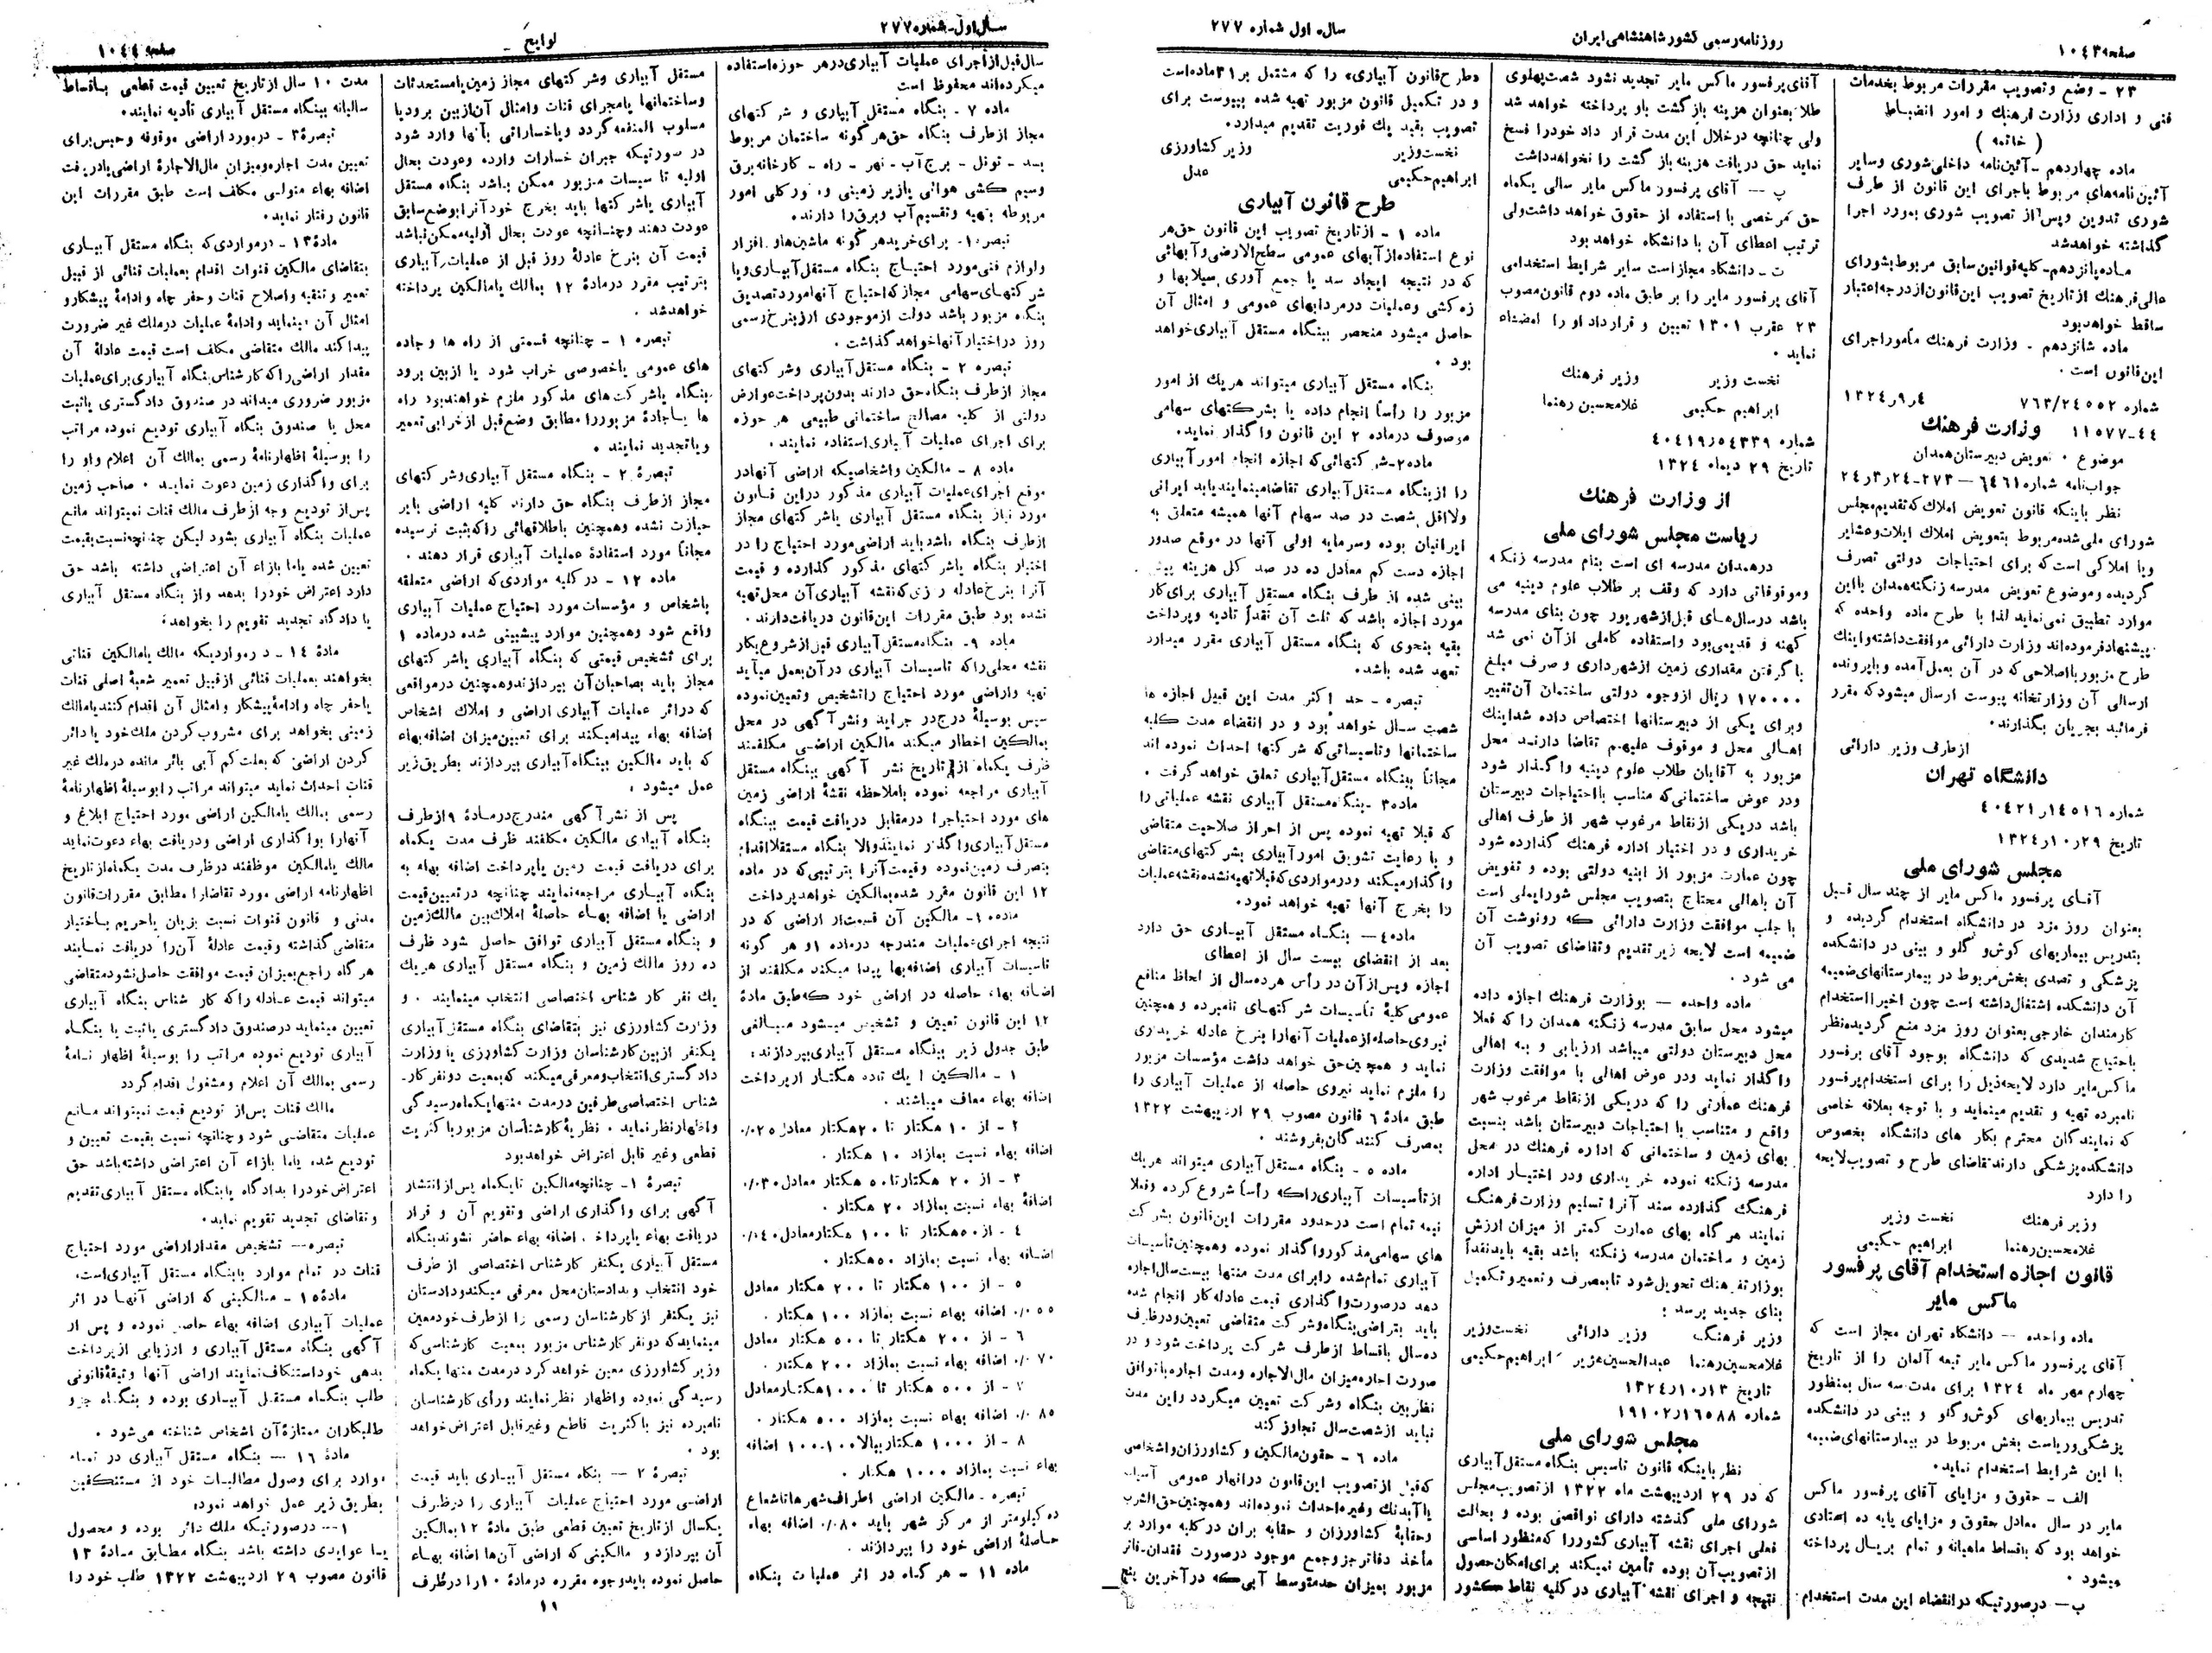 صفحه ۱۰۴۳
روزنامه رسمی کشور شاهنشاهی ایران
سال اول شماره ۲۷۷
۲۳ - وضع و تصویب مقررات مربوط بخدمات
فنی و اداری وزارت فرهنك و امور انضباط
( خاتمه )
ماده چهاردهم - آئین‌نامه داخلی شوری وسایر
آئین نامه‌های مربوط باجرای این قانون از طرف
شوری تدوین وپس از تصویب شوری بمورد اجرا
گذاشته خواهدشد
ماده پانزدهم- کلیه قوانین سابق مربوط بشورای
عالی فرهنك از تاریخ تصویب این قانون از درجه اعتبار
ساقط خواهدبود
ماده شانزدهم - وزارت فرهنك مأمور اجرای
این قانون است .
شماره ۷۶۳/۲۴۵۵۲ ۴ر۹ر۱۳۲۴
۱۱۵۷۷-۴۴ وزارت فرهنك
موضوع . تعویض دبیرستان همدان
جواب نامه شماره ۶۴۶۱ – ۲۷۳-۲۴ر۳ر۲۴
نظر باینکه قانون تعویض املاك که تقدیم مجلس
شورای ملی شده مربوط بتعویض املاك ایلات وعشایر
ویا املاکی است که برای احتیاجات دولتی تصرف
گردیده وموضوع تعویض مدرسه زنگنه همدان بااین
موارد تطبیق نمی نماید لذا با طرح ماده واحده که
پیشنهاد فرموده‌اند وزارت دارائی موافقت داشته واینك
طرح مزبور بااصلاحی که در آن بعمل آمده وباپرونده
ارسالی آن وزارتخانه پیوست ارسال میشود که مقرر
فرمائید بجریان بگذارند.
ازطرف وزیر دارائی
دانشگاه تهران
شماره ۱۴۵۱۶ر۴۰۴۲۱
تاریخ ۲۹ر۱۰ر۱۳۲۴
مجلس شورای ملی
آقای پرفسور ماکس مایر از چند سال قبل
بعنوان روز مزد در دانشگاه استخدام گردیده و
بتدریس بیماریهای گوش و گلو و بینی در دانشکده
پزشکی و تصدی بخش مربوط در بیمارستانهای ضمیمه
آن دانشکده اشتغال داشته است چون اخیرا استخدام
کارمندان خارجی بعنوان روز مزد منع گردیده نظر
باحتیاج شدیدی که دانشگاه بوجود آقای پرفسور
ماکس مایر دارد لایحه ذیل را برای استخدام پرفسور
نامبرده تهیه و تقدیم مینماید و با توجه بعلاقه خاصی
که نمایندگان محترم بکار های دانشگاه بخصوص
دانشکده پزشکی دارند تقاضای طرح و تصویب لایحه
را دارد
وزیر فرهنك نخست وزیر
غلامحسین رهنما ابراهیم حکیمی
قانون اجازه استخدام آقای پرفسور
ماکس مایر
ماده واحده — دانشگاه تهران مجاز است که
آقای پرفسور ماکس مایر تبعه آلمان را از تاریخ
چهارم مهر ماه ۱۳۲۴ برای مدت سه سال بمنظور
تدریس بیماریهای گوش و گلو و بینی در دانشکده
پزشکی وریاست بخش مربوط در بیمارستانهای ضمیمه
با این شرایط استخدام نماید.
الف - حقوق و مزایای آقای پرفسور ماکس
مایر در سال معادل حقوق و مزایای پایه ده استادی
خواهد بود که باقساط ماهیانه و تمام بریال پرداخته
میشود .
ب — درصورتیکه درانقضاء این مدت استخدام
آقای پرفسور ماکس مایر تجدید نشود شصت پهلوی
طلا بعنوان هزینه بازگشت باو پرداخته خواهد شد
ولی چنانچه درخلال این مدت قرار داد خودرا فسخ
نماید حق دریافت هزینه باز گشت را نخواهدداشت
پ — آقای پرفسور ماکس مایر سالی یکماه
حق مرخصی با استفاده از حقوق خواهد داشت ولی
ترتیب اعطای آن با دانشگاه خواهد بود
ت - دانشگاه مجاز است سایر شرایط استخدامی
آقای پرفسور مایر را بر طبق ماده دوم قانون مصوب
۲۳ عقرب ۱۳۰۱ تعیین و قرارداد او را امضاء
نماید .
نخست وزیر وزیر فرهنك
ابراهیم حکیمی غلامحسین رهنما
شماره ۵۴۳۳۹ر۴۰۴۱۹
تاریخ ۲۹ دیماه ۱۳۲۴
از وزارت فرهنك
ریاست مجلس شورای ملی
درهمدان مدرسه ای است بنام مدرسه زنگنه
وموقوفاتی دارد که وقف بر طلاب علوم دینیه می
باشد درسال‌های قبل از شهریور چون بنای مدرسه
کهنه و قدیمی بود واستفاده کاملی ازآن نمی شد
با گرفتن مقداری زمین از شهرداری و صرف مبلغ
۱۷۰۰۰۰ ریال از وجوه دولتی ساختمان آن تغییر
وبرای یکی از دبیرستانها اختصاص داده شد اینك
اهالی محل و موقوف علیهم تقاضا دارند محل
مزبور به آقایان طلاب علوم دینیه واگذار شود
ودر عوض ساختمانی که مناسب با احتیاجات دبیرستان
باشد دریکی از نقاط مرغوب شهر از طرف اهالی
خریداری و در اختیار اداره فرهنك گذارده شود
چون عمارت مزبور از ابنیه دولتی بوده و تفویض
آن باهالی محتاج بتصویب مجلس شورایملی است
با جلب موافقت وزارت دارائی که رونوشت آن
ضمیمه است لایحه زیر تقدیم وتقاضای تصویب آن
می شود .
ماده واحده — بوزارت فرهنك اجازه داده
میشود محل سابق مدرسه زنگنه همدان را که فعلا
محل دبیرستان دولتی میباشد ارزیابی و به اهالی
واگذار نماید ودر عوض اهالی با موافقت وزارت
فرهنك عمارتی را که دریکی از نقاط مرغوب شهر
واقع و متناسب با احتیاجات دبیرستان باشد بنسبت
بهای زمین و ساختمانی که اداره فرهنك در محل
مدرسه زنگنه نموده خریداری ودر اختیار اداره
فرهنگ گذارده سند آنرا تسلیم وزارت فرهنگ
نمایند هر گاه بهای عمارت کمتر از میزان ارزش
زمین و ساختمان مدرسه زنگنه باشد بقیه باید نقداً
بوزارت فرهنك تحویل شود تا بمصرف وتعمیر و تکمیل
بنای جدید برسد :
وزیر فرهنگ وزیر دارائی نخست وزیر
غلامحسین رهنما عبدالحسین هژیر ابراهیم حکیمی
تاریخ ۱۳ر۱۰ر۱۳۲۴
شماره ۱۶۵۸۸ر۱۹۱۰۲
مجلس شورای ملی
نظر باینکه قانون تاسیس بنگاه مستقل آبیاری
که در ۲۹ اردیبهشت ماه ۱۳۲۲ از تصویب مجلس
شورای ملی گذشته دارای نواقصی بوده و بحالت
فعلی اجرای نقشه آبیاری کشور را که منظور اساسی
از تصویب آن بوده تأمین نمیکند برای امکان حصول
نتیجه و اجرای نقشه آبیاری در کلیه نقاط کشور
«طرح قانون آبیاری» را که مشتمل بر ۳۱ ماده است
و در تکمیل قانون مزبور تهیه شده بپیوست برای
تصویب بقید یك فوریت تقدیم میدارد.
نخست وزیر وزیر کشاورزی
ابراهیم حکیمی عدل
طرح قانون آبیاری
ماده ۱ - از تاریخ تصویب این قانون حق هر
نوع استفاده از آبهای عمومی سطح الارضی وآبهائی
که در نتیجه ایجاد سد یا جمع آوری سیلابها و
زه کشی وعملیات درمردابهای عمومی و امثال آن
حاصل میشود منحصر ببنگاه مستقل آبیاری خواهد
بود .
بنگاه مستقل آبیاری میتواند هریك از امور
مزبور را رأساً انجام داده یا بشرکتهای سهامی
موصوف درماده ۲ این قانون واگذار نماید.
ماده۲- شرکتهائی که اجازه انجام امور آبیاری
را از بنگاه مستقل آبیاری تقاضا مینمایند باید ایرانی
ولااقل شصت در صد سهام آنها همیشه متعلق به
ایرانیان بوده وسرمایه اولی آنها در موقع صدور
اجازه دست کم معادل ده در صد کل هزینه پیش
بینی شده از طرف بنگاه مستقل آبیاری برای کار
مورد اجازه باشد که ثلث آن نقداً تادیه وپرداخت
بقیه بنحوی که بنگاه مستقل آبیاری مقرر میدارد
تعهد شده باشد.
تبصره - حد اکثر مدت این قبیل اجازه ها
شصت سال خواهد بود و در انقضاء مدت کلیه
ساختمانها وتاسیساتی که شرکتها احداث نموده اند
مجاناً ببنگاه مستقل آبیاری تعلق خواهد گرفت .
ماده۳- بنگاه مستقل آبیاری نقشه عملیاتی را
که قبلا تهیه نموده پس از احراز صلاحیت متقاضی
و با رعایت تشویق امور آبیاری بشرکتهای متقاضی
واگذار میکند ودرمواردی که قبلا تهیه نشده نقشه عملیات
را بخرج آنها تهیه خواهد نمود.
ماده۴— بنگاه مستقل آبیاری حق دارد
بعد از انقضای بیست سال از اعطای
اجازه وپس ازآن در رأس هرده سال از لحاظ منافع
عمومی کلیهٔ تأسیسات شرکتهای نامبرده و همچنین
نیروی حاصله از عملیات آنهارا بنرخ عادله خریداری
نماید و همچنین حق خواهد داشت مؤسسات مزبور
را ملزم نماید نیروی حاصله از عملیات آبیاری را
طبق مادهٔ ۶ قانون مصوب ۲۹ اردیبهشت ۱۳۲۲
بمصرف کنندگان بفروشند .
ماده ۵ - بنگاه مستقل آبیاری میتواند هریك
از تأسیسات آبیاری را که رأساً شروع کرده وفعلا
نیمه تمام است درحدود مقررات این قانون بشرکت
های سهامی مذکور واگذار نموده وهمچنین تأسیسات
آبیاری تمام شده را برای مدت منتها بیست سال اجاره
دهد درصورت واگذاری قیمت عادله کار انجام شده
باید بتراضی بنگاه وشرکت متقاضی تعیین ودرظرف
ده سال باقساط از طرف شرکت پرداخت شود و در
صورت اجاره میزان مال الاجاره ومدت اجاره باتوافق
نظر بین بنگاه وشرکت تعیین میگردد واین مدت
نباید از شصت سال تجاوز کند
ماده ۶ - حقوق مالکین و کشاورزان واشخاصی
که قبل از تصویب این قانون درانهار عمومی آسیاب
یا آبدنك وغیره احداث نموده‌اند وهمچنین حق الشرب
وحقابهٔ کشاورزان و حقابه بران در کلیه موارد بر
مأخذ دفاتر جزو جمع موجود درصورت فقدان دفاتر
مزبور بمیزان حد متوسط آبی که درآخرین پنج
سال اول - شماره ۲۷۷
لوایح -
صفحه ۱۰۴۴
سال قبل از اجرای عملیات آبیاری درهر حوزه استفاده
میکرده‌اند محفوظ است
ماده ۷ - بنگاه مستقل آبیاری و شرکتهای
مجاز ازطرف بنگاه حق هر گونه ساختمان مربوط
بسد - تونل - برج آب - نهر - راه - کارخانه برق
وسیم کشی هوائی یا زیر زمینی و بطور کلی امور
مربوطه بتهیه وتقسیم آب وبرق را دارند.
تبصره۱- برای خرید هر گونه ماشین‌ها و افزار
ولوازم فنی مورد احتیاج بنگاه مستقل آبیاری ویا
شرکتهای سهامی مجاز که احتیاج آنها مورد تصدیق
بنگاه مزبور باشد دولت از موجودی ارز بنرخ رسمی
روز دراختیار آنها خواهد گذاشت .
تبصره ۲ - بنگاه مستقل آبیاری وشرکتهای
مجاز از طرف بنگاه حق دارند بدون پرداخت عوارض
دولتی از کلیه مصالح ساختمانی طبیعی هر حوزه
برای اجرای عملیات آبیاری استفاده نمایند:
ماده ۸ - مالکین واشخاصیکه اراضی آنهادر
موقع اجرای عملیات آبیاری مذکور دراین قانون
مورد نیاز بنگاه مستقل آبیاری یاشرکتهای مجاز
ازطرف بنگاه باشد باید اراضی مورد احتیاج را در
اختیار بنگاه یاشرکتهای مذکور گذارده و قیمت
آنرا بنرخ عادله روزی که نقشه آبیاری آن محل تهیه
نشده بود طبق مقررات این قانون دریافت دارند.
ماده ۹- بنگاه مستقل آبیاری قبل از شروع بکار
نقشه محلی را که تأسیسات آبیاری درآن بعمل میآید
تهیه واراضی مورد احتیاج را تشخیص وتعیین نموده
سپس بوسیلهٔ درج در جراید ونشر آگهی در محل
بمالکین اخطار میکند مالکین اراضی مکلفند
ظرف یکماه از تاریخ نشر آگهی ببنگاه مستقل
آبیاری مراجعه نموده باملاحظه نقشهٔ اراضی زمین
های مورد احتیاج را درمقابل دریافت قیمت ببنگاه
مستقل آبیاری واگذار نمایند والا بنگاه مستقلا اقدام
بتصرف زمین نموده وقیمت آنرا بترتیبی که در ماده
۱۲ این قانون مقرر شده بمالکین خواهد پرداخت
ماده ۱۰- مالکین آن قسمت از اراضی که در
نتیجه اجرای عملیات مندرجه درماده ۱ و هر گونه
تاسیسات آبیاری اضافه بها پیدا میکند مکلفند از
اضافه بهاء حاصله در اراضی خود که طبق مادهٔ
۱۲ این قانون تعیین و تشخیص میشود مبالغی
طبق جدول زیر ببنگاه مستقل آبیاری بپردازند:
۱ - مالکین از یك تا ده هکتار از پرداخت
اضافه بهاء معاف میباشند .
۲ - از ۱۰ هکتار تا ۲۰ هکتار معادل ۲۵٪
اضافه بهاء نسبت بمازاد ۱۰ هکتار .
۳ - از ۲۰ هکتار تا ۵۰ هکتار معادل ۳۰٪
اضافهٔ بهاء نسبت بمازاد ۲۰ هکتار .
۴ - از ۵۰ هکتار تا ۱۰۰ هکتار معادل ۴۰٪
اضافه بهاء نسبت بمازاد ۵۰ هکتار .
۵ - از ۱۰۰ هکتار تا ۲۰۰ هکتار معادل
۵۵٪ اضافه بهاء نسبت بمازاد ۱۰۰ هکتار .
۶ - از ۲۰۰ هکتار تا ۵۰۰ هکتار معادل
۷۰٪ اضافه بهاء نسبت بمازاد ۲۰۰ هکتار .
۷ - از ۵۰۰ هکتار تا ۱۰۰۰ هکتار معادل
۸۵٪ اضافه بهاء نسبت بمازاد ۵۰۰ هکتار .
۸ - از ۱۰۰۰ هکتار ببالا ۱۰۰-۱۰۰ اضافه
بهاء نسبت بمازاد ۱۰۰۰ هکتار .
تبصره - مالکین اراضی اطراف شهرها تاشعاع
ده کیلومتر از مرکز شهر باید ۸۰٪ اضافه بهاء
حاصلهٔ اراضی خود را بپردازند .
ماده ۱۱ - هر گاه در اثر عملیات بنگاه
مستقل آبیاری وشرکتهای مجاز زمین یا مستحدثات
وساختمانها یا مجرای قنات وامثال آن ازبین برود یا
مسلوب المنفعه گردد ویا خساراتی بآنها وارد شود
در صورتیکه جبران خسارات وارده وعودت بحال
اولیه تاسیسات مزبور ممکن باشد بنگاه مستقل
آبیاری یاشرکتها باید بخرج خود آنرا بوضع سابق
عودت دهند وچنانچه عودت بحال اولیه ممکن نباشد
قیمت آن بنرخ عادلهٔ روز قبل از عملیات آبیاری
بترتیب مقرر درمادهٔ ۱۲ بمالك یامالکین پرداخته
خواهدشد .
تبصره ۱ - چنانچه قسمتی از راه ها و جاده
های عمومی یاخصوصی خراب شود یا ازبین برود
بنگاه یاشرکت‌های مذکور ملزم خواهند بود راه
ها یاجادهٔ مزبور را مطابق وضع قبل از خرابی تعمیر
ویا تجدید نمایند .
تبصرهٔ ۲ - بنگاه مستقل آبیاری وشرکتهای
مجاز ازطرف بنگاه حق دارند کلیه اراضی بایر
حیازت نشده وهمچنین باطلاقهائی را که بثبت نرسیده
مجاناً مورد استفادهٔ عملیات آبیاری قرار دهند .
ماده ۱۲ - در کلیه مواردی که اراضی متعلقه
باشخاص و مؤسسات مورد احتیاج عملیات آبیاری
واقع شود وهمچنین موارد پیشبینی شده درماده ۱
برای تشخیص قیمتی که بنگاه آبیاری یاشرکتهای
مجاز باید بصاحبان آن بپردازند وهمچنین درمواقعی
که دراثر عملیات آبیاری اراضی و املاك اشخاص
اضافه بهاء پیدا میکند برای تعیین میزان اضافه بهاء
که باید مالکین ببنگاه آبیاری بپردازند بطریق زیر
عمل میشود :
پس از نشر آگهی مندرج درمادهٔ ۹ از طرف
بنگاه آبیاری مالکین مکلفند ظرف مدت یکماه
برای دریافت قیمت زمین یا پرداخت اضافه بهاء به
بنگاه آبیاری مراجعه نمایند چنانچه در تعیین قیمت
اراضی یا اضافه بهاء حاصلهٔ املاك بین مالك زمین
و بنگاه مستقل آبیاری توافق حاصل شود ظرف
ده روز مالك زمین و بنگاه مستقل آبیاری هریك
یك نفر کارشناس اختصاصی انتخاب مینمایند . و
وزارت کشاورزی نیز بتقاضای بنگاه مستقل آبیاری
یکنفر ازبین کارشناسان وزارت کشاورزی یا وزارت
دادگستری انتخاب ومعرفی میکند که بمعیت دونفر کار-
شناس اختصاصی طرفین درمدت منتها یکماه رسیدگی
واظهار نظر نماید . نظریهٔ کارشناسان مزبور با کثریت
قطعی وغیر قابل اعتراض خواهد بود
تبصرهٔ ۱- چنانچه مالکین تا یکماه پس از انتشار
آگهی برای واگذاری اراضی وتقویم آن و قرار
دریافت بهاء یاپرداخت اضافه بهاء حاضر نشوند بنگاه
مستقل آبیاری یکنفر کارشناس اختصاصی از طرف
خود انتخاب وبدادستان محل معرفی میکند ودادستان
نیز یکنفر از کارشناسان رسمی را ازطرف خود معین
مینماید که دونفر کارشناس مزبور بمعیت کارشناسی که
وزیر کشاورزی معین خواهد کرد درمدت منتها یکماه
رسیدگی نموده واظهار نظر نمایند ورأی کارشناسان
نامبرده نیز باکثریت قاطع وغیر قابل اعتراض خواهد
بود .
تبصرهٔ ۲ — بنگاه مستقل آبیاری باید قیمت
اراضی مورد احتیاج عملیات آبیاری را درظرف
یکسال از تاریخ تعیین قطعی طبق مادهٔ ۱۲ بمالکین
آن بپردازد و مالکینی که اراضی آن‌ها اضافه بهاء
حاصل نموده باید وجوه مقرره درمادهٔ ۱۰ را درظرف
مدت ۱۰ سال از تاریخ تعیین قیمت قطعی باقساط
سالیانه ببنگاه مستقل آبیاری تأدیه نمایند.
تبصرهٔ۳ - درمورد اراضی موقوفه و حبس برای
تعیین مدت اجاره ومیزان مال الاجارهٔ اراضی یا دریافت
اضافه بهاء متولی مکلف است طبق مقررات این
قانون رفتار نماید.
مادهٔ ۱۳ - درمواردی که بنگاه مستقل آبیاری
بتقاضای مالکین قنوات اقدام بعملیات قنائی از قبیل
تعمیر و تنقیه واصلاح قنات وحفر چاه وادامهٔ پیشکارو
امثال آن مینماید وادامهٔ عملیات درملك غیر ضرورت
پیدا کند مالك متقاضی مکلف است قیمت عادلهٔ آن
مقدار اراضی را که کارشناس بنگاه آبیاری برای عملیات
مزبور ضروری میداند در صندوق دادگستری یا ثبت
محل یا صندوق بنگاه آبیاری تودیع نموده مراتب
را بوسیلهٔ اظهارنامهٔ رسمی بمالك آن اعلام واو را
برای واگذاری زمین دعوت نماید . صاحب زمین
پس از تودیع وجه ازطرف مالك قنات نمیتواند مانع
عملیات بنگاه آبیاری بشود لیکن چنانچه نسبت بقیمت
تعیین شده یا ما بازاء آن اعتراضی داشته باشد حق
دارد اعتراض خودرا بدهد واز بنگاه مستقل آبیاری
یا دادگاه تجدید تقویم را بخواهد:
مادهٔ ۱۴ - درمواردیکه مالك یامالکین قناتی
بخواهند بعملیات قنائی ازقبیل تعمیر شعبهٔ اصلی قنات
یاحفر چاه وادامهٔ پیشکار وامثال آن اقدام کنند یا مالك
زمینی بخواهد برای مشروب کردن ملك خود یا دائر
کردن اراضی که بعلت کم آبی بائر مانده درملك غیر
قنات احداث نماید میتواند مراتب را بوسیلهٔ اظهارنامهٔ
رسمی بمالك یامالکین اراضی مورد احتیاج ابلاغ و
آنهارا بواگذاری اراضی ودریافت بهاء دعوت نماید
مالك یامالکین موظفند درظرف مدت یکماه از تاریخ
اظهارنامه اراضی مورد تقاضارا مطابق مقررات قانون
مدنی و قانون قنوات نسبت بزیان یاحریم باختیار
متقاضی گذاشته وقیمت عادلهٔ آن را دریافت نمایند
هر گاه راجع بمیزان قیمت موافقت حاصل نشود متقاضی
میتواند قیمت عادله را که کارشناس بنگاه آبیاری
تعیین مینماید درصندوق دادگستری یا ثبت یا بنگاه
آبیاری تودیع نموده مراتب را بوسیلهٔ اظهار نامهٔ
رسمی بمالك آن اعلام ومشغول اقدام گردد
مالك قنات پس از تودیع قیمت نمیتواند مانع
عملیات متقاضی شود وچنانچه نسبت بقیمت تعیین و
تودیع شده یاما بازاء آن اعتراضی داشته باشد حق
اعتراض خودرا بدادگاه یا بنگاه مستقل آبیاری تقدیم
وتقاضای تجدید تقویم نماید.
تبصره— تشخیص مقدار اراضی مورد احتیاج
قنات در تمام موارد با بنگاه مستقل آبیاری است.
مادهٔ ۱۵ - مالکینی که اراضی آنها در اثر
عملیات آبیاری اضافه بهاء حاصل نموده و پس از
آگهی بنگاه مستقل آبیاری و ارزیابی از پرداخت
بدهی خود استنکاف نمایند اراضی آنها وثیقهٔ قانونی
طلب بنگاه مستقل آبیاری بوده و بنگاه جزو
طلبکاران ممتازهٔ آن اشخاص شناخته می‌شود .
مادهٔ ۱۶ — بنگاه مستقل آبیاری در تمام
موارد برای وصول مطالبات خود از مستنکفین
بطریق زیر عمل خواهد نمود:
۱-- درصورتیکه ملك دائر بوده و محصول
یا عوایدی داشته باشد بنگاه مطابق مادهٔ ۱۳
قانون مصوب ۲۹ اردیبهشت ۱۳۲۲ طلب خود را
۱۱